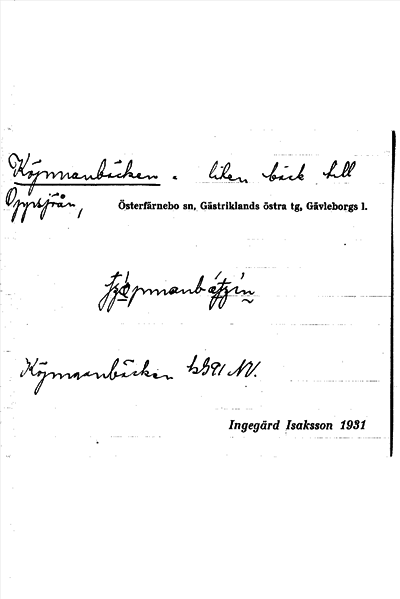 Köpmanbäcken. liten bäck till
Österfärnebo sn, Gästriklands östra tg, Gävleborgs l.
Köpmanbäcken NV.
Ingegärd Isaksson 1931